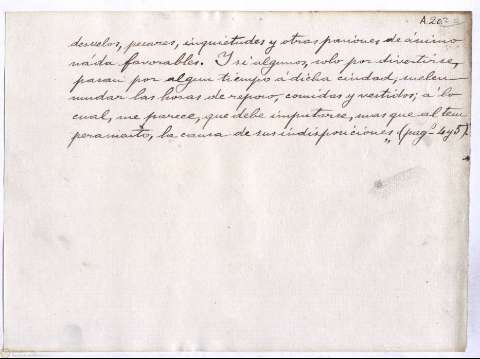 A. 20
desvelos, pesares, inquietudes y otras pasiones de ánimo
nada favorables. Y si algunos, solo por divertirse,
pasan por algun tiempo á dicha ciudad, suelen
mudar las horas de reposo, comidas y vestidos; a lo
cual, me parece, que debe imputarse, mas que al tem
peramento, la causa de sus indisposiciones„ (pagª 4 y 5)